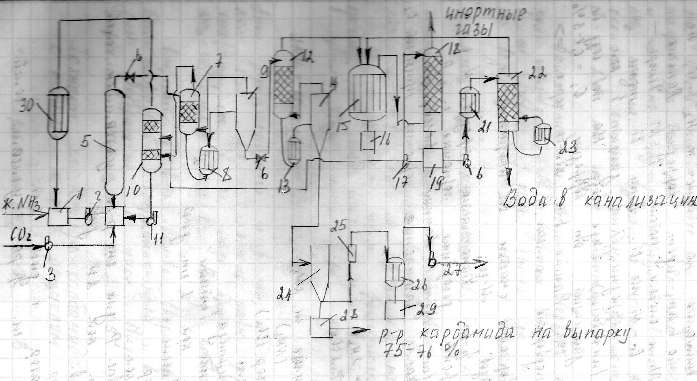 инертные
газы
6
7
9
12
4
18
22
30
5
8
6
13
15
16
21
23
10
17
19
6
ж. NH3
1
2
Вода в канализацию
CO2
3
11
25
24
26
27
28
29
р-р карбамида на выпарку
75-76 %